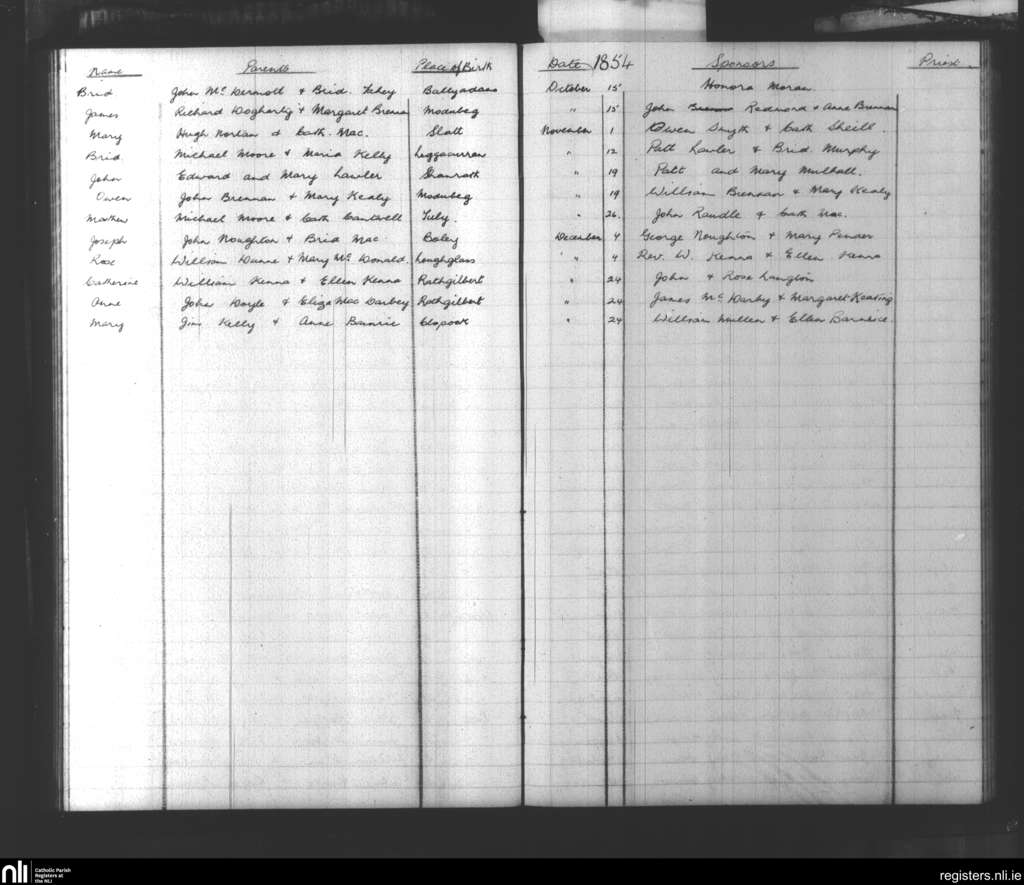 Name Parents Place of Birth Date 1854 Sponsors Priest.
Brid John Mc Dermott & Brid. Fehey Ballyadams October 15 Honora Moran
James Richard Dogharty & Margaret Brenan Modubeg " 15 John Redmond & Anne Brennan
Mary Hugh Norlan & Cath. Mac. Slatt November 1 Owen Smyth & Cath Sheill.
Brid. Michael Moore & Maria Kelly Luggacurren " 12 Patt Lawler & Brid. Murphy
John Edward and Mary Lawler Shanrath " 19 Patt and Mary Mulhall.
Owen John Brennan & Mary Kealy Modubeg " 19 William Brennan & Mary Kealy
Mathew Michael Moore & Cath Cantwell Tully. " 26. John Raudle & Cath Mac.
Joseph John Noughton & Brid Mac. Boley December 4 George Noughton & Mary Pender
Rose William Dunne & Mary Mc Donald. Loughglass " 4 Rev. W. Kenna & Ellen Kenna
Catherine William Kenna & Ellen Kenna Rathgilbert " 24 John & Rose Langton
Anne John Doyle & Eliza Mac Darbey Rathgilbert " 24 James Mc Darby & Margaret Keating
Mary Jim Kelly & Anne Clapook " 24 William Mullen & Ellen
nli Catholic Parish
Registers at
the NLI
registers.nli.ie